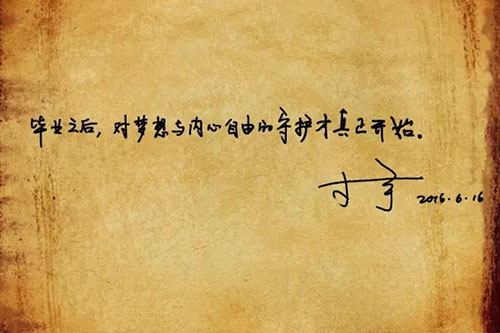 毕业之后，对梦想与内心自由的守护才真正开始。
2016.6.16